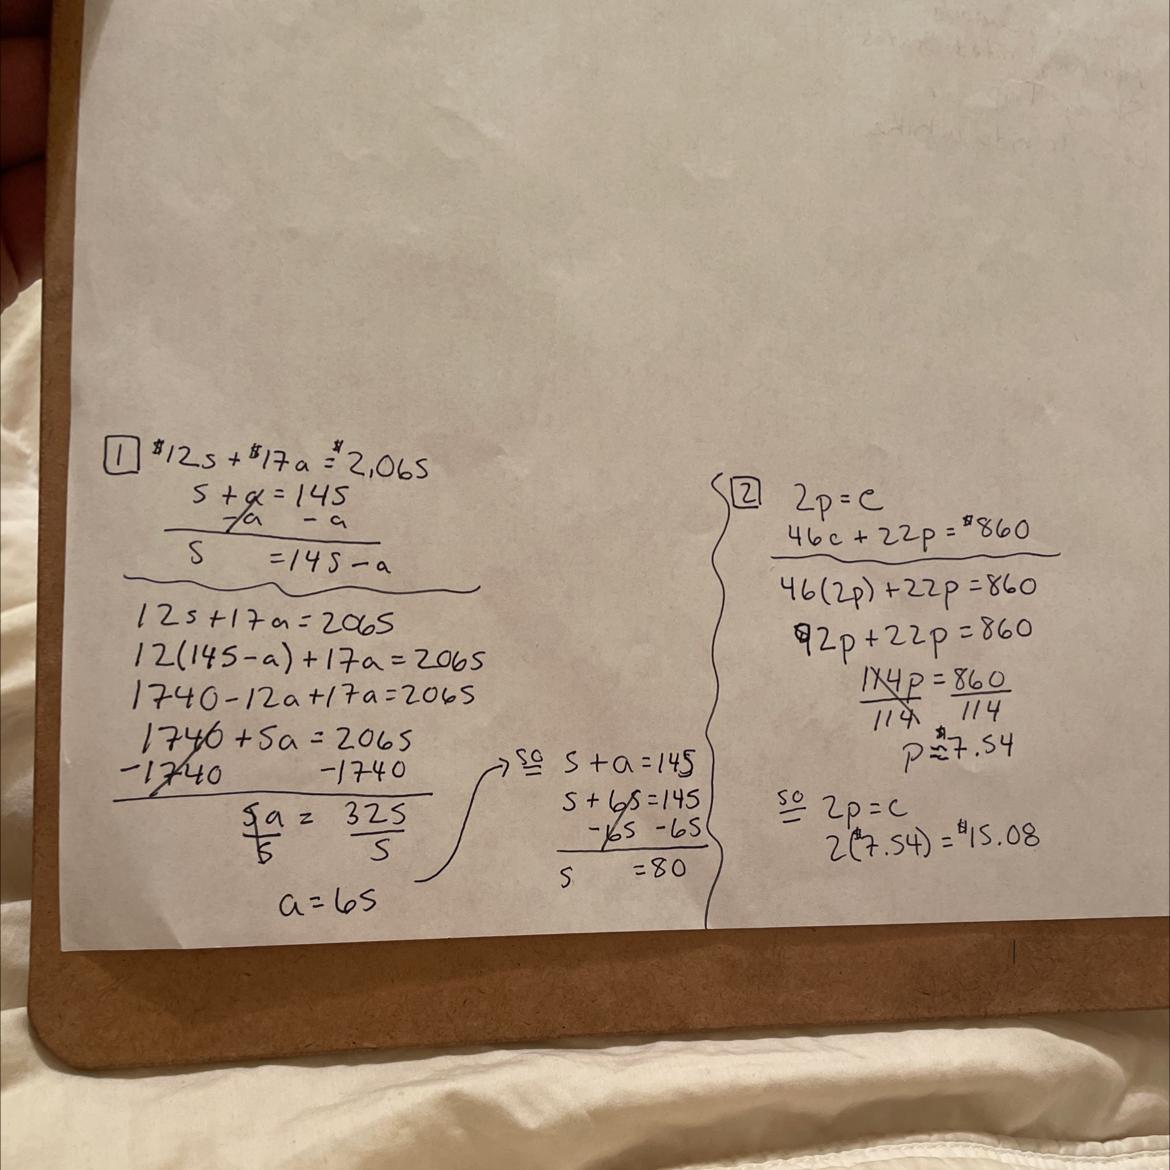 1 $12s + $17a = $2,065
s + a = 145
-a - a
s = 145 - a
12s + 17a = 2065
12(145 - a) + 17a = 2065
1740 - 12a + 17a = 2065
1740 + 5a = 2065
-1740 -1740
5a = 325
5 5
a = 65
so s + a = 145
s + 65 = 145
-65 -65
s = 80
2 2p = c
46c + 22p = $860
46(2p) + 22p = 860
92p + 22p = 860
114p = 860
114 114
p ≈ $7.54
so 2p = c
2($7.54) = $15.08